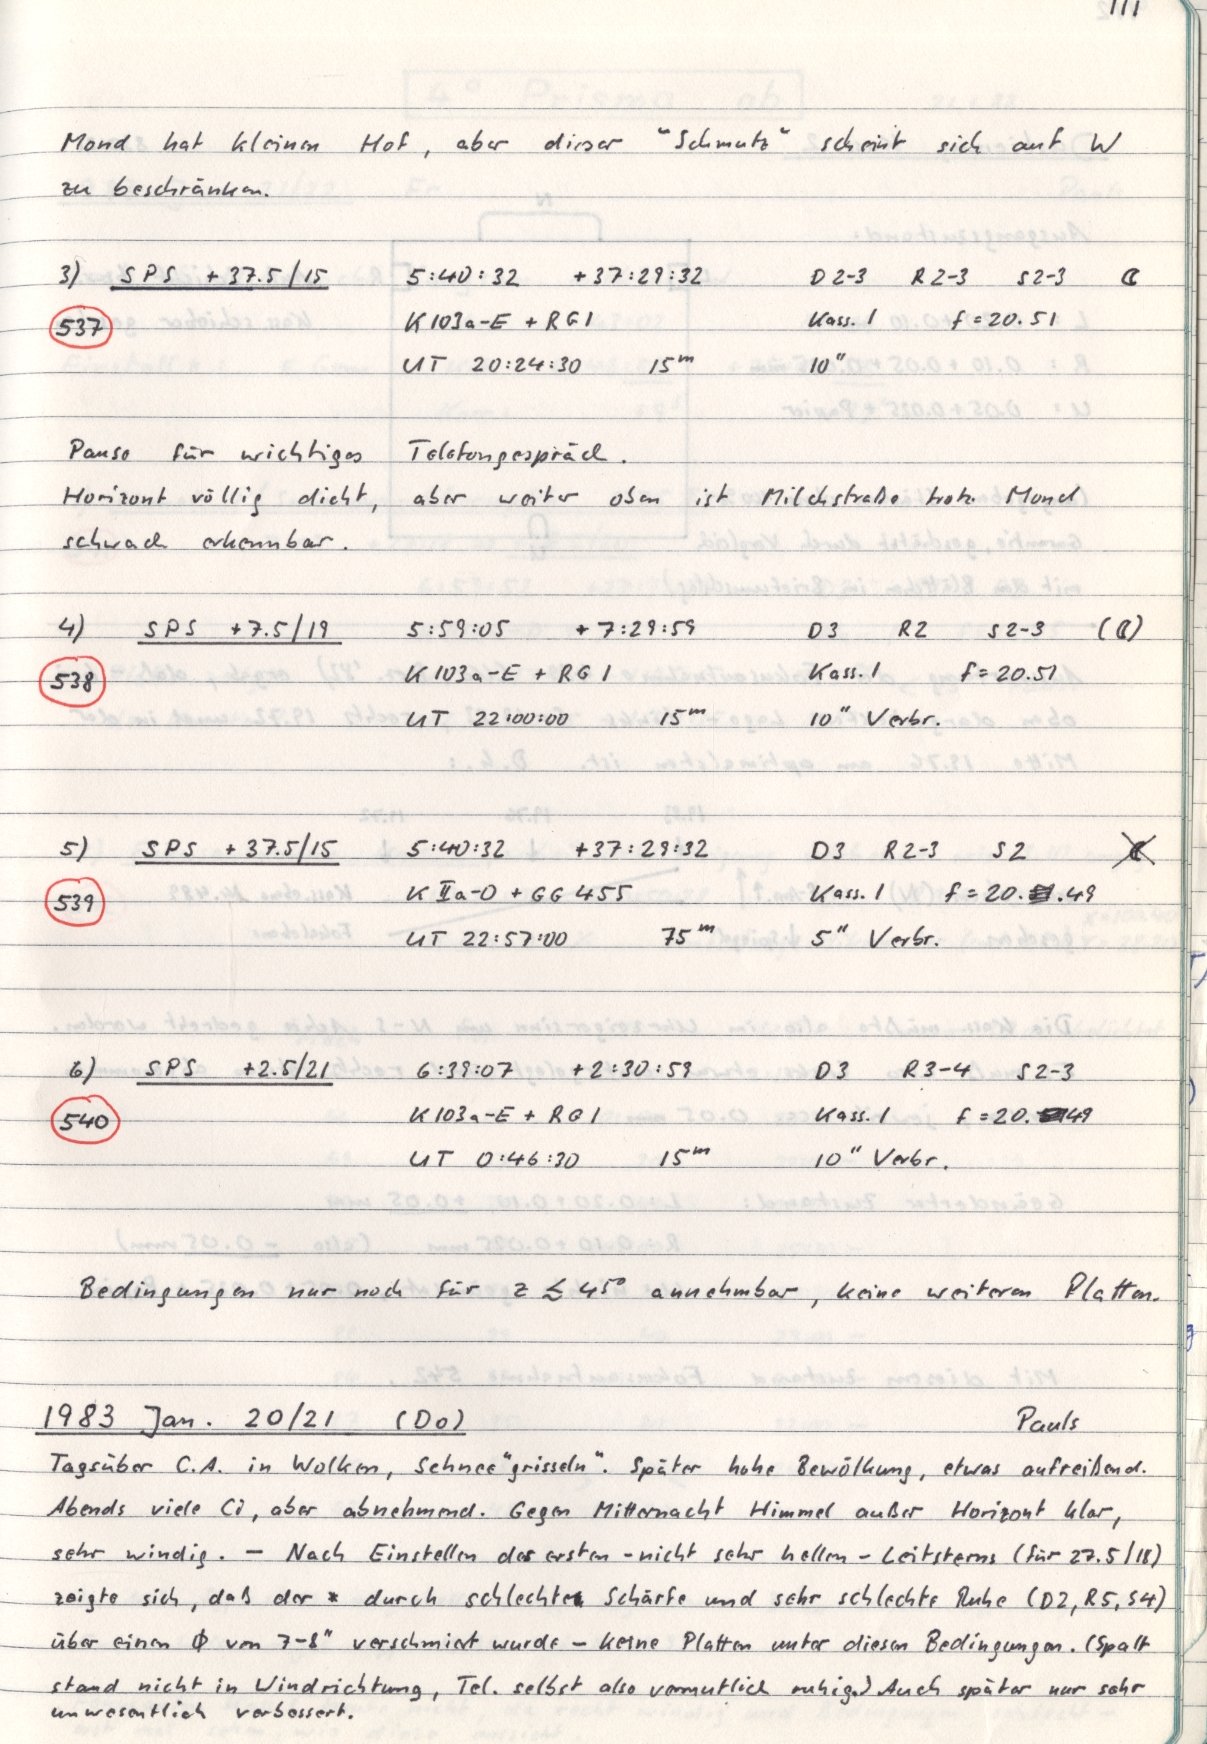 111
Mond hat kleinen Hof, aber dieser "Schmutz" scheint sich auf W
zu beschränken.
3) SPS +37.5/15 5:40:32 +37:29:32 D2-3 R2-3 S2-3 ☾
537 K 103a-E + RG1 Kass. 1 f = 20.51
UT 20:24:30 15ᵐ 10"
Pause für wichtiges Telefongespräch.
Horizont völlig dicht, aber weiter oben ist Milchstraße trotz Mond
schwach erkennbar.
4) SPS +7.5/19 5:59:05 +7:29:59 D3 R2 S2-3 (☾)
538 K 103a-E + RG1 Kass. 1 f = 20.51
UT 22:00:00 15ᵐ 10" Verbr.
5) SPS +37.5/15 5:40:32 +37:29:32 D3 R2-3 S2
539 K IIa-O + GG 455 Kass. 1 f = 20.49
UT 22:57:00 75ᵐ 5" Verbr.
6) SPS +2.5/21 6:39:07 +2:30:59 D3 R3-4 S2-3
540 K 103a-E + RG1 Kass. 1 f = 20.49
UT 0:46:30 15ᵐ 10" Verbr.
Bedingungen nur noch für z ≲ 45° annehmbar, keine weiteren Platten.
1983 Jan. 20/21 (Do) Pauls
Tagsüber C.A. in Wolken, Schnee"grisseln". Später hohe Bewölkung, etwas aufreißend.
Abends viele Ci, aber abnehmend. Gegen Mitternacht Himmel außer Horizont klar,
sehr windig. – Nach Einstellen des ersten - nicht sehr hellen - Leitsterns (für 27.5/18)
zeigte sich, daß der * durch schlechte Schärfe und sehr schlechte Ruhe (D2, R5, S4)
über einen Φ von 7-8" verschmiert wurde – keine Platten unter diesen Bedingungen. (Spalt
stand nicht in Windrichtung, Tel. selbst also vermutlich ruhig.) Auch später nur sehr
unwesentlich verbessert.